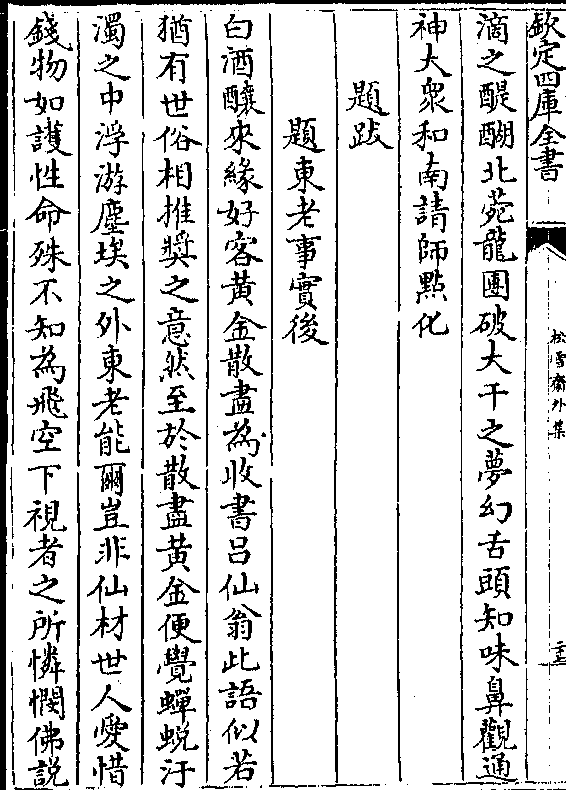 欽定四庫全書
松雪齋外集
滴之醍醐北苑龍團破大千之夢幻舌頭知味鼻觀通
神大衆和南請師點化
題跋
題東老事實後
白酒釀來緣好客黃金散盡為收書吕仙翁此語似若
猶有世俗相推獎之意然至於散盡黃金便覺蟬蛻汙
濁之中浮游塵埃之外東老能爾豈非仙材世人愛惜
錢物如護性命殊不知為飛空下視者之所憐憫佛説